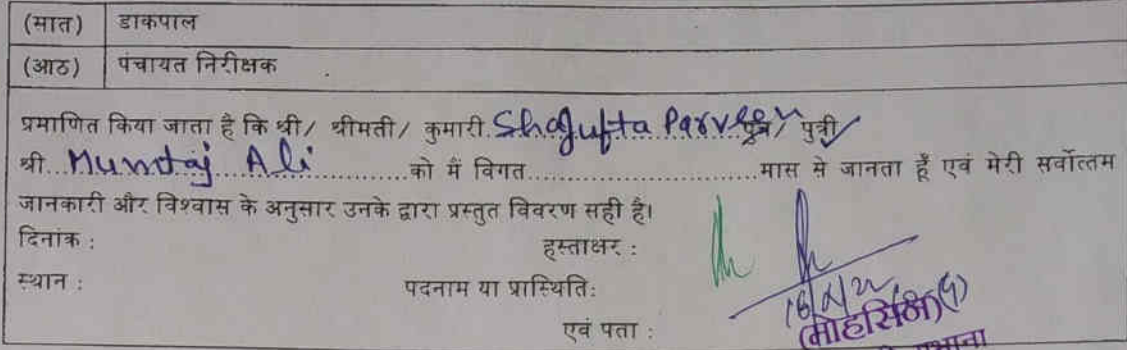 (सात) डाकपाल
(आठ) पंचायत निरीक्षक
प्रमाणित किया जाता है कि श्री/ श्रीमती/ कुमारी Shagufta Parveen पुत्र/ पुत्री
श्री...Mumtaj Ali...को मैं विगत..............................मास से जानता हूँ एवं मेरी सर्वोत्तम
जानकारी और विश्वास के अनुसार उनके द्वारा प्रस्तुत विवरण सही है।
दिनांक : हस्ताक्षर :
स्थान : पदनाम या प्रास्थिति:
एवं पता :